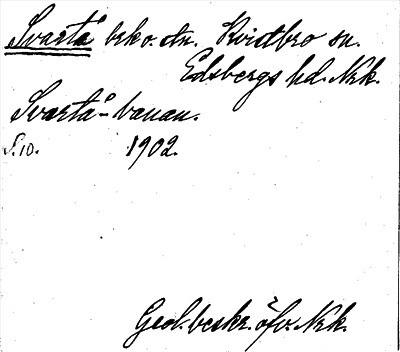 Svartå brko. stn. Kvistbro sn.
Edsbergs hd. Nrk.
Svartå-banan.
S. 10. 1902.
Geol. beskr. öfv. Nrk.